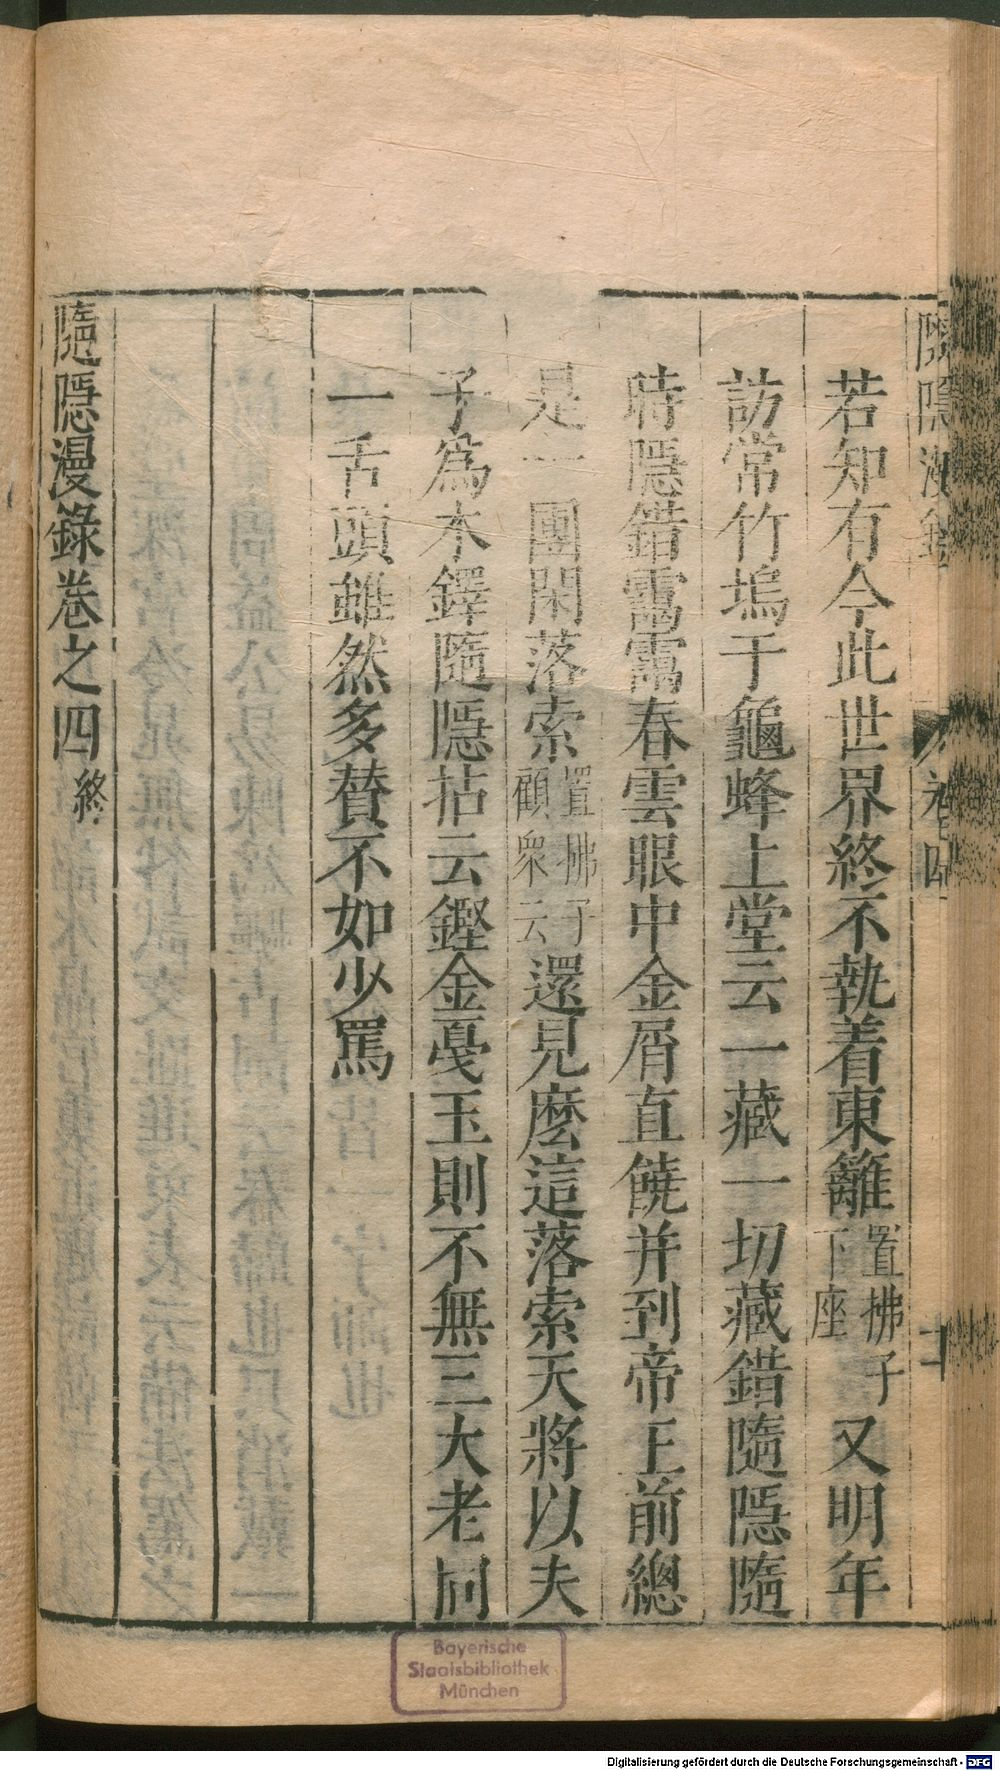 隨隱漫錄
卷四
十
若知有今此世界終不執着東籬置拂子下座又明年
訪常竹塢于龜蜂上堂云一藏一切藏錯隨隱隨
時隱錯靄靄春雲眼中金屑直饒并到帝王前總
是一團閑落索置拂子顧衆云還見麽這落索天將以夫
子爲木鐸隨隱拈云鏗金戞玉則不無三大老同
一舌頭雖然多賛不如少罵
隨隱漫錄卷之四終
Bayerische
Staatsbibliothek
München
Digitalisierung gefördert durch die Deutsche Forschungsgemeinschaft - DFG